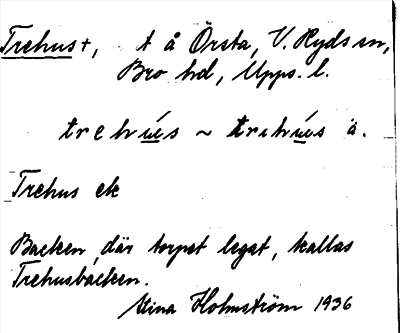 Trehus +, t å Örsta, V. Ryds sn,
Bro hd, Upps. l.
trehús ~ trihús ä.
Trehus ek
Backen, där torpet legat, kallas
Trehusbacken.
Stina Holmström 1936